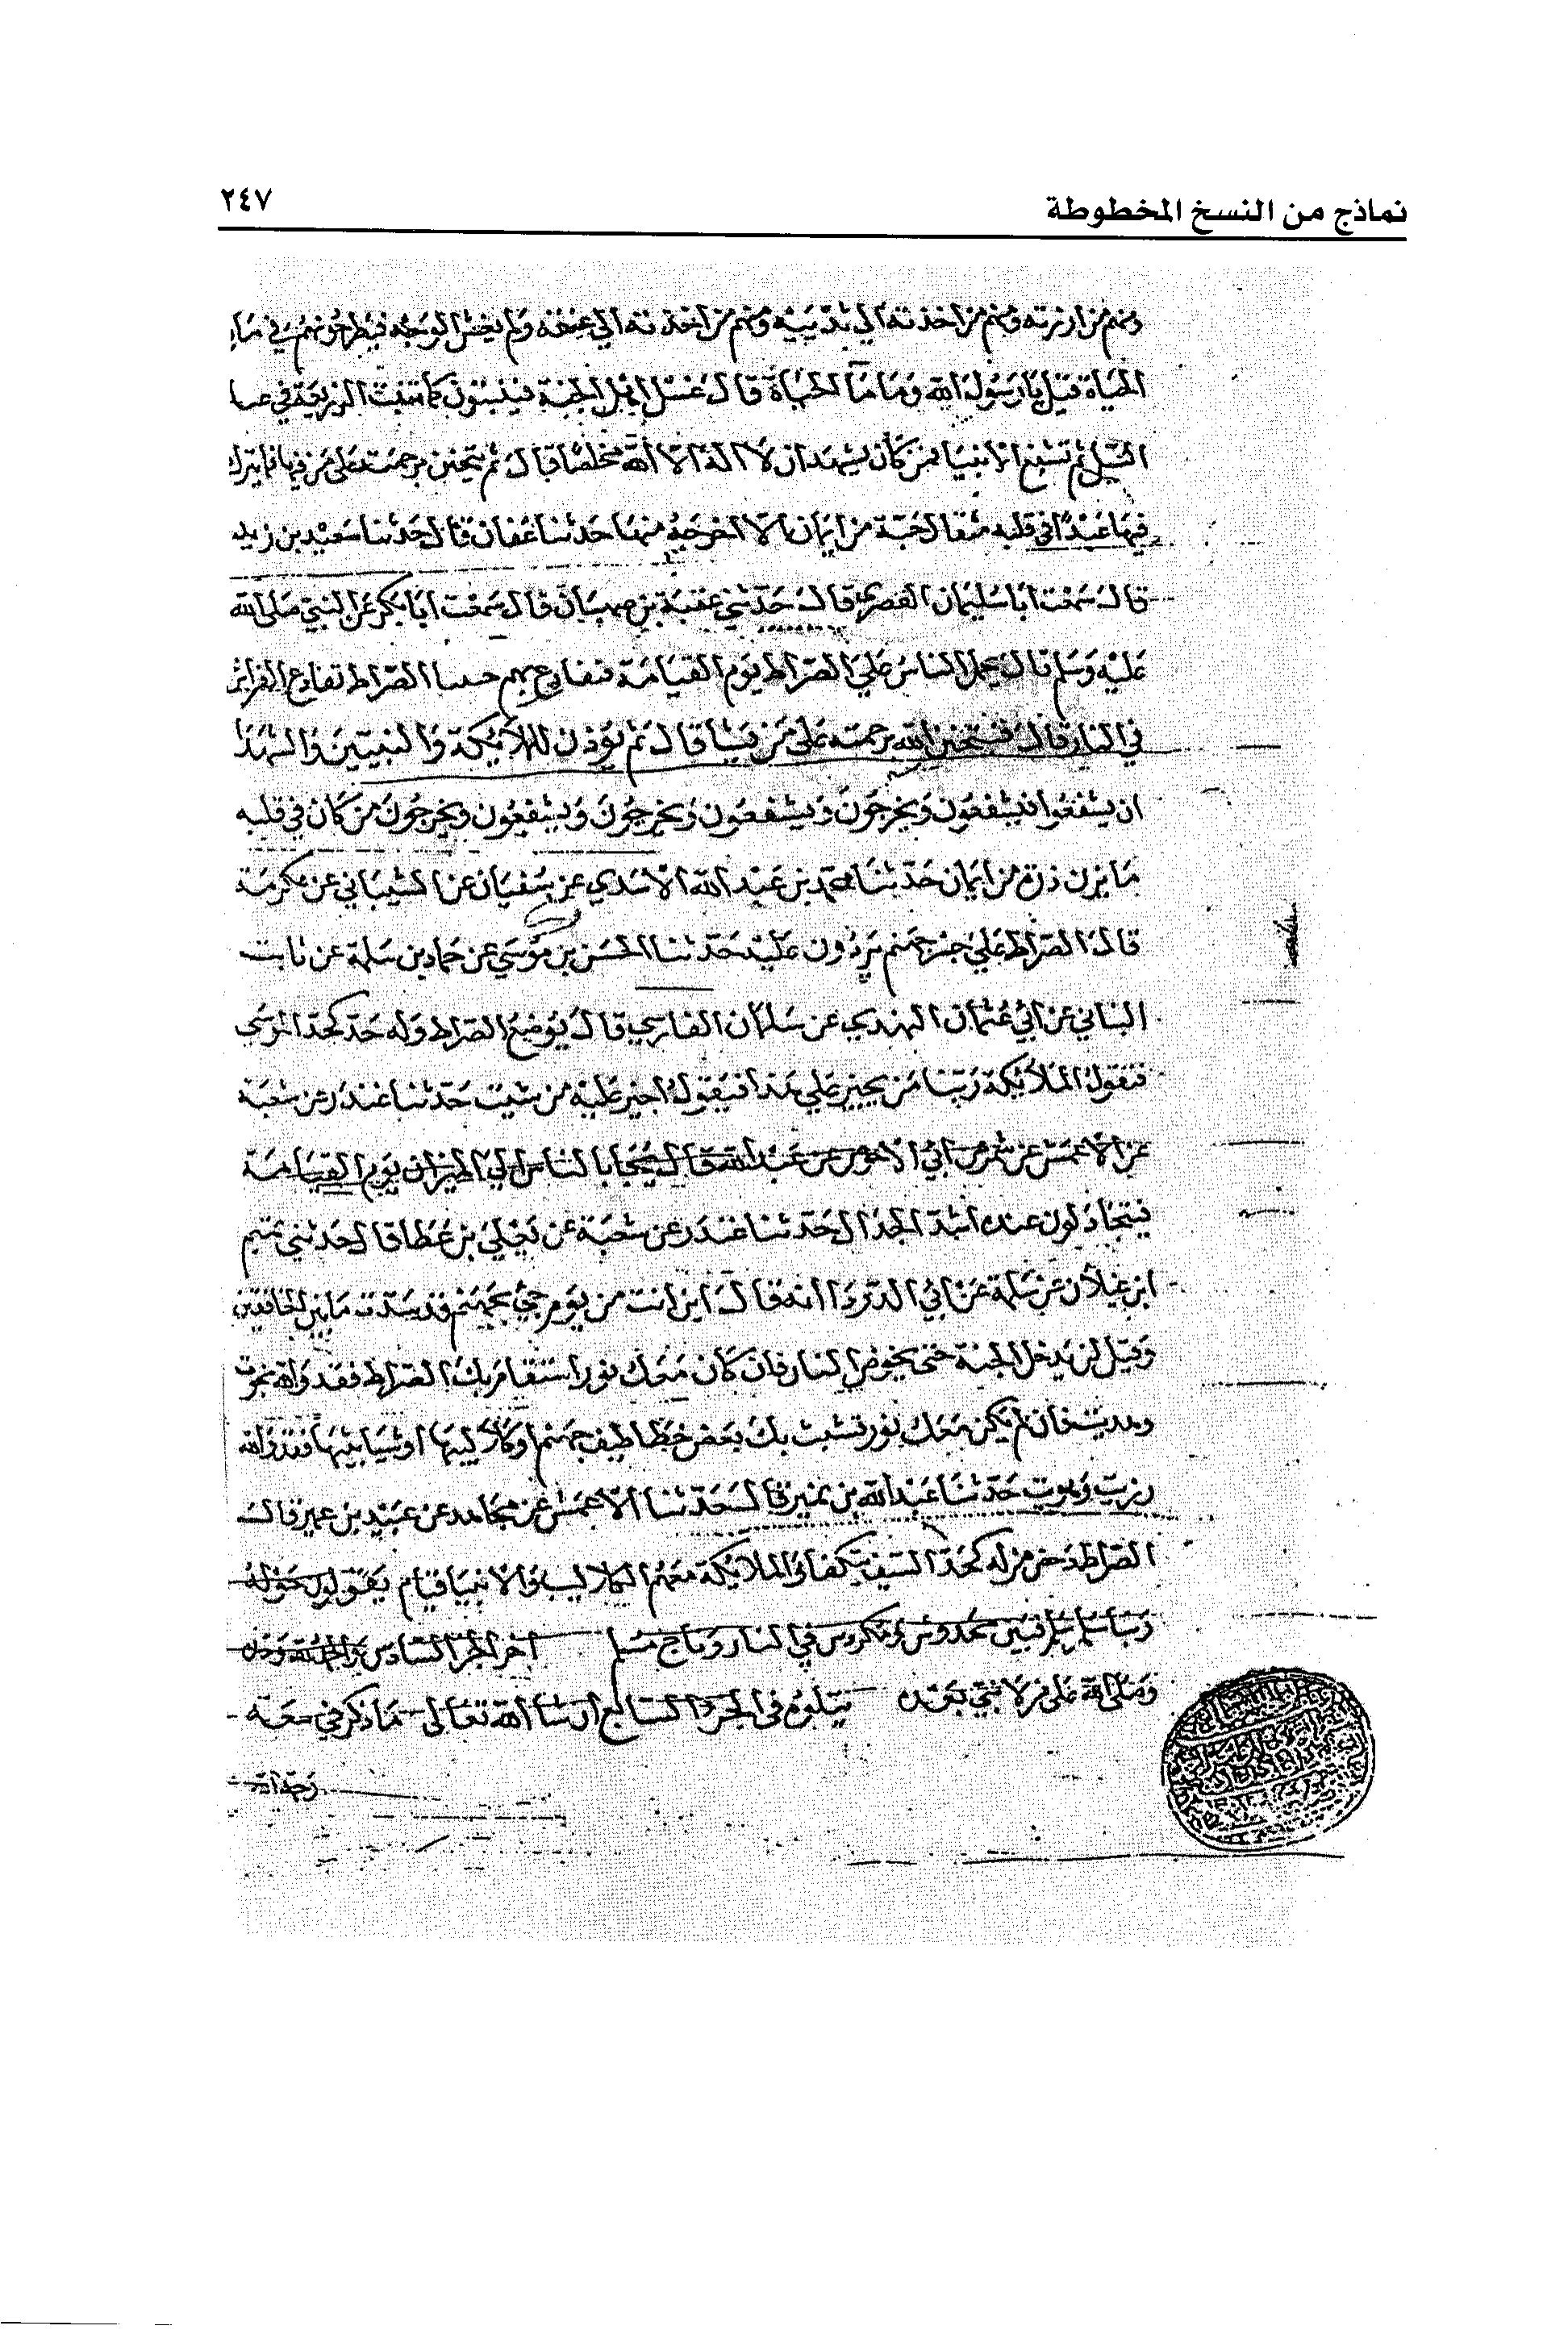 نماذج من النسخ المخطوطة ٢٤٧
ومنهم من ازرته ومنهم من اخذته الى ثدييه ومنهم من اخذته الى عنقه ولم يغش الوجه فيطرحونهم في ماء
الحياة قيل يا رسول الله وما ماء الحياة قال غسل اهل الجنة فينبتون كما تنبت الزريعة في
السيل ثم تشفع الانبيا فمن كان يشهد ان لا اله الا الله مخلصا قال ثم يتحنن برحمته على من فيها فما يترك
فيها عبدا في قلبه مثقال حبة من ايمان الا اخرجه منها حدثنا عفان قال حدثنا سعيد بن زيد
قال سمعت ابا سليمان العصري قال حدثني عقبة بن صهبان قال سمعت ابا بكر عن النبي صلى الله
عليه وسلم قال يحمل الناس على الصراط يوم القيامة فتقادع بهم الصراط تقادع الفراش
في النار قال فيتحنن الله برحمته على من يشا قال ثم يوذن للملائكة والنبيين والشهدا
ان يشفعوا فيشفعون ويخرجون ويشفعون ويخرجون ويشفعون ويخرجون من كان في قلبه
ما يزن ذرة من ايمان حدثنا محمد بن عبد الله الاسدي عن سفيان عن الشيباني عن عكرمة
قال الصراط على جسر جهنم يردون عليه حدثنا الحسن بن موسي عن حماد بن سلمة عن ثابت
البناني عن ابي عثمان النهدي عن سلمان الفارسي قال يوضع الصراط وله حد كحد الموسى
فتقول الملائكة ربنا من يجيز علي هذا فيقول اجيز عليه من شيت حدثنا غندر عن شعبة
عن الاعمش عن شمر عن ابي الاحوص عن عبد الله قال يجا بالناس الي الميزان يوم القيامة
فيتجادلون عنده اشد الجدال حدثنا غندر عن شعبة عن يعلي بن عطا قال حدثني تميم
ابن غيلان عن سلمة عن ابي الدردا انه قال اين انت من يوم جي بجهنم قد سدت ما بين الخافقين
وقيل لن يدخل الجنة حتى يخوض النار فان كان معك نور استقام بك الصراط فقد والله نجوت
وهديت فان لم يكن معك نور تشبث بك بعض خطاطيف جهنم او كلاليبها او شبابيثها فقد والله
رديت وهويت حدثنا عبد الله بن نمير قال حدثنا الاعمش عن مجاهد عن عبيد بن عمير قال
الصراط دحض مزلة كحد السيف يتكفا والملائكة معهم الكلاليب والانبيا قيام يقولون حوله
ربنا سلم سلم فبين مخدوش ومكردس في النار وناج مسلم اخر الجزا السادس والحمد لله وحده
وصلى الله على من لا نبي بعده يتلوه في الجزا السابع ان شا الله تعالى ما ذكر في سعة
رحمة الله